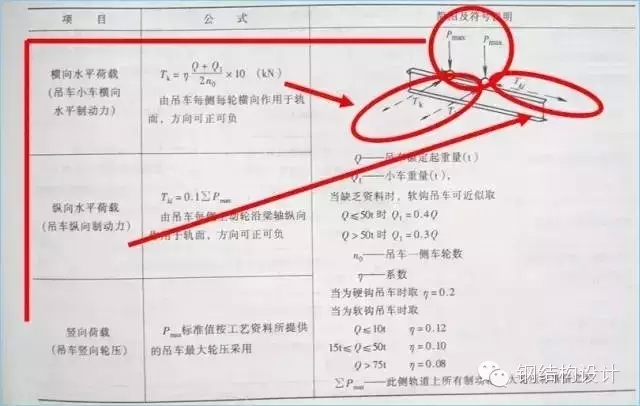 项 目
公 式
简图及符号说明
横向水平荷载
(吊车小车横向
水平制动力)
T_k = η (Q + Q_1)/(2n_0) ×10 (kN)
由吊车每侧每轮横向作用于轨
面,方向可正可负
P_max
P_max
T_k
T_kl
纵向水平荷载
(吊车纵向制动力)
T_kl = 0.1∑P_max
由吊车每侧主动轮沿梁轴纵向
作用于轨面,方向可正可负
竖向荷载
(吊车竖向轮压)
P_max标准值按工艺资料所提供
的吊车最大轮压采用
Q——吊车额定起重量(t)
Q_1——小车重量(t),
当缺乏资料时,软钩吊车可近似取
Q≤50t时 Q_1 = 0.4Q
Q>50t时 Q_1 = 0.3Q
n_0——吊车一侧车轮数
η——系数
当为硬钩吊车时取 η = 0.2
当为软钩吊车时取
Q≤10t η = 0.12
15t≤Q≤50t η = 0.10
Q>75t η = 0.08
∑P_max——此侧轨道上所有制动
钢结构设计